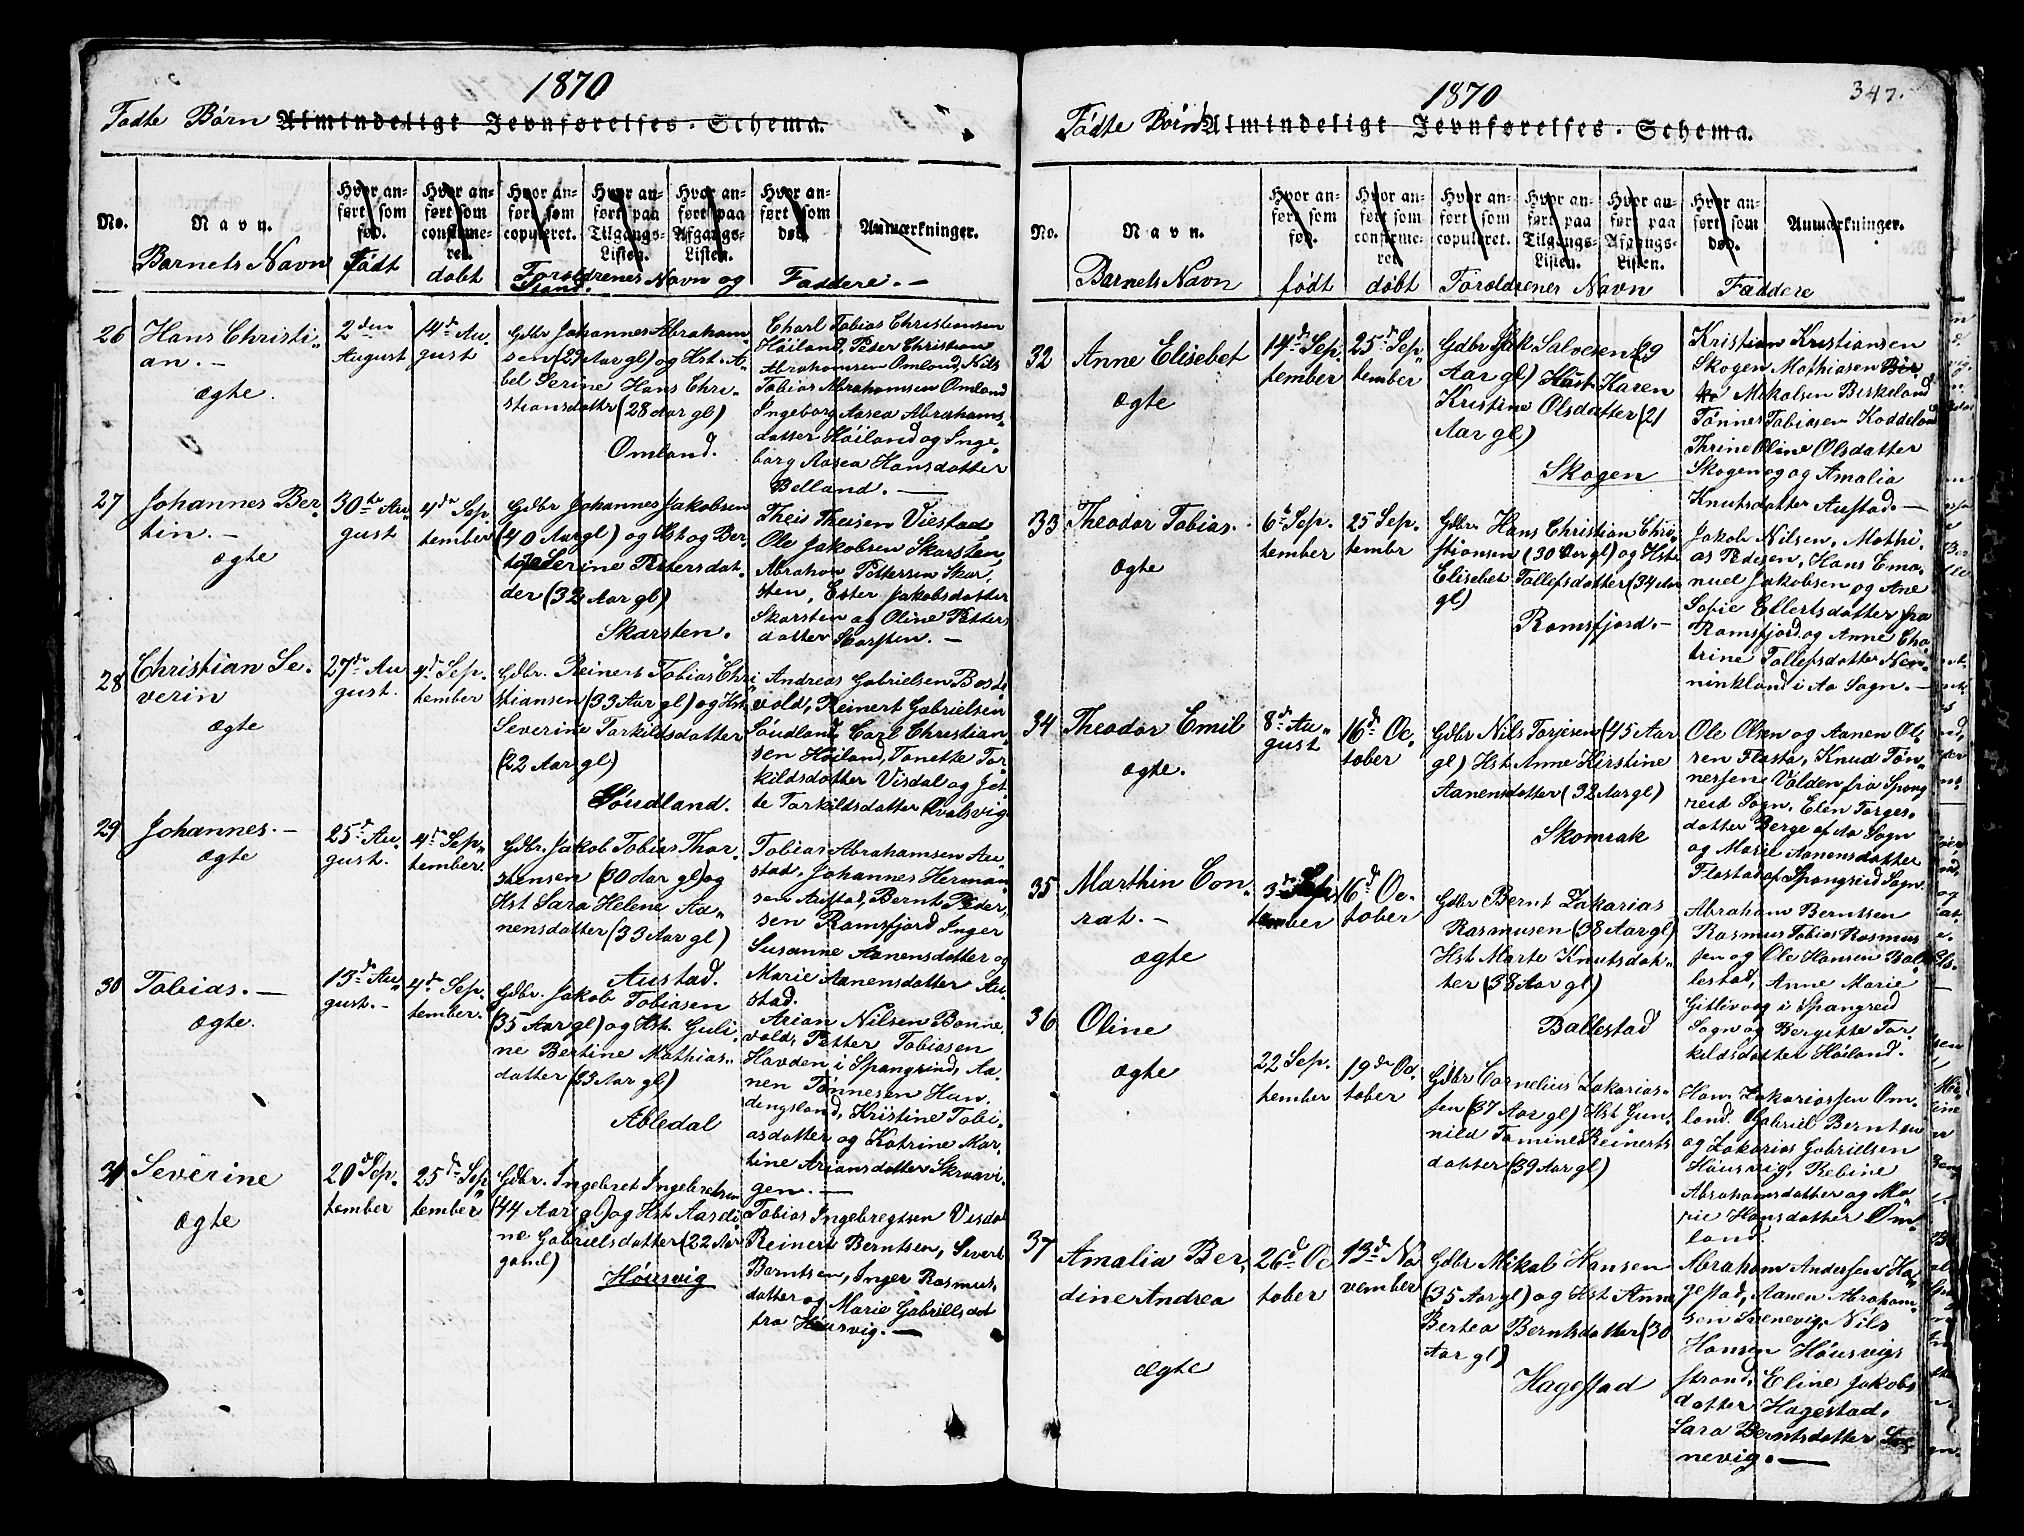 1870
Fødte Børn Almindeligt Jevnførelses-Schema.
No.
Navn.
Hvor anført som fød.
Hvor anført som confirmeret.
Hvor anført som copuleret.
Hvor anført paa Tilgangs-Listen.
Hvor anført paa Afgangs-Listen.
Hvor anført som død.
Anmærkninger.
Barnets Navn
Født
døbt
Foreldrenes Navn og
Stand.
Faddere.
26
Hans Christi-
an.
Ægte.
2den
August
14de Au-
gust
Gdbr Johannes Abraham-
sen (29 Aar gl) og Hst. A-
bel Serine Hans Chri-
stiansdatter (28 Aar gl)
Omland.
Charl Tobias Christiansen
Høiland, Peder Christian
Abrahamsen Omland, Nils
Tobias Abrahamsen Omland
Ingeborg Aasea Abrahams-
datter Høiland og Inge-
borg Aasea Hansdatter
Belland.
27
Johannes Ber-
tin.
Ægte
30te Au-
gust
4de Sep-
tember
Gdbr Johannes Jakobsen
(40 Aar gl) og Hst og Ber-
Serine Petersdat-
der (32 Aar gl)
Skarsten.
Theis Theisen Viestad
Ole Jakobsen Skarsten,
Abraham Pettersen Skar-
sten, Ester Jakobsdatter
Skarsten og Oline Petter
datter Skarsten.
28
Christian Se-
verin
Ægte
27de Au
gust.
4de Sep-
tember
Gdbr. Reinert Tobias Chri
stiansen (33 Aar gl) og Hst.
Severine Torkildsdatter
(22 Aar gl)
Søudland.
Andreas Gabrielsen Bosde
vold, Reinert Gabrielsen
Søudland, Carl Christian-
sen Høiland, Tonette Tor
kildsdatter Visdal og Jet-
te Torkildsdatter Qvalsvig
29
Johannes.
Ægte
25de Au-
gust.
4de Sep-
tember.
Gdbr. Jakob Tobias Thor-
stensen (30 Aar gl) og
Hst Sara Helene Aa-
nensdatter (33 Aar gl)
Austad.
Tobias Abrahamsen Au-
stad, Johannes Herman-
sen Austad, Bernt Peder-
sen Ramsfjord Inger
Susanne Aanensdatter og
Marie Aanensdatter Au-
stad.
30
Tobias.
Ægte.
13de Au-
gust.
4de Sep-
tember.
Gdbr. Jakob Tobiasen
(35 Aar gl) og Hst. Guli-
ne Bertine Mathias-
datter (33 Aar gl)
Abledal
Arian Nilsen Bonne-
vold, Petter Tobiasen
Havden i Spangreid, Aa-
nen Tønnesen Hun-
dingsland, Kristine Tobi-
asdatter og Katrine Mar-
tine Ariansdatter Skraavi-
gen.
31
Severine
Ægte
20de Sep-
tember
25de Sep-
tember
Gdbr. Ingebret Ingebretsen
(44 Aar gl) og Hst Aasdi-
ne Gabrielsdatter (22 Aar
gaml)
Høusvig
Tobias Ingebregtsen Visdal
Reinert Berntsen, Sivert
Berntsen, Inger Rasmus-
datter og Marie Gabrielsdat
fra Høusvig.
1870
347.
Fødte Børn Almindeligt Jevnførelses-Schema.
No.
Navn.
Hvor anført som fød.
Hvor anført som confirmeret.
Hvor anført som copuleret.
Hvor anført paa Tilgangs-Listen.
Hvor anført paa Afgangs-Listen.
Hvor anført som død.
Anmærkninger.
Barnets Navn
født
døbt
Foreldrenes Navn
Faddere
32
Anne Elisebet
Ægte
14de Sep-
tember
25de Sep-
tember
Gdbr Salvesen (29
Aar gl) Hst Karen
Kristine Olsdatter (21
Aar gl)
Skogen
Kristian Kristiansen
Skogen Mathiasen
Mikalsen Birkeland
Tønnes Tobiasen Koddeland
Thrine Oline Olsdatter
Skogen og Amalia
Knutsdatter Austad.
33
Theodor Tobias.
Ægte
6te Sep-
tember
25 Sep-
tembr
Gdbr. Hans Christian Chri-
stiansen (30 Aar gl) og Hst
Elisebet Tollefsdatter (34 Aar
gl)
Ramsfjord.
Jakob Nilsen, Mathi-
as Pedesen, Hans Ema-
nuel Jakobsen og Ane
Sofie Ellertsdatter fra
Ramsfjord og Anne Cha-
trine Tollefsdatter Nen-
ninkland i Aa Sogn.
34
Theodor Emil
Ægte.
8de Au-
gust
16de Oc-
tober
Gdbr Nils Torjesen (45 Aar
gl) Hst Anne Kirstine
Aanensdatter (32 Aar gl)
Skomrak
Ole Olsen og Aanen Ol-
sen Flasta, Knud Tøn-
nesen Volden fra Spang
reid Sogn, Elen Torges-
datter Berge af Aa Sogn
og Marie Aanensdatter
Flastad af Spangreid Sogn.
35
Marthin Con-
rat.
Ægte
3de Sep
tember
16de Oc-
tober
Gdbr Bernt Zakarias
Rasmusen (38 Aar gl)
Hst Marte Knutsdat-
ter (38 Aar gl)
Ballestad
Abraham Berntsen
Rasmus Tobias Rasmus
sen og Ole Hansen Bal-
lestad, Anne Marie
Gitlivaag i Spangreid
Sogn og Bergitte Tor-
kildsdatter Høiland.
36
Oline
Ægte
22 Sep-
tember
19de Oc-
tober
Gdbr Cornelius Zakarias-
sen (37 Aar gl) Hst Gun-
nild Tomine Reinerts
datter (39 Aar gl)
Hans Zakariassen Om-
land. Gabriel Berntsen
og Zakarias Gabrielsen
Høusvig, Rebine
Abrahamsdatter og Ma-
rie Hansdatter Om-
land.
37
Amalia Ber-
dine Andrea
Ægte
26de Oc
tober
13de No
vember
Gdbr Mikal Hansen
(35 Aar gl) og Hst Anne
Bertea Berntsdatter (30
Aar gl)
Hagestad
Abraham Andersen Ha-
gestad, Aanen Abraham-
sen Svenevig, Nils
Hansen Høusvigs
strand, Eline Jakobs
datter Hagestad,
Sara Berntsdatter Sve
nevig.